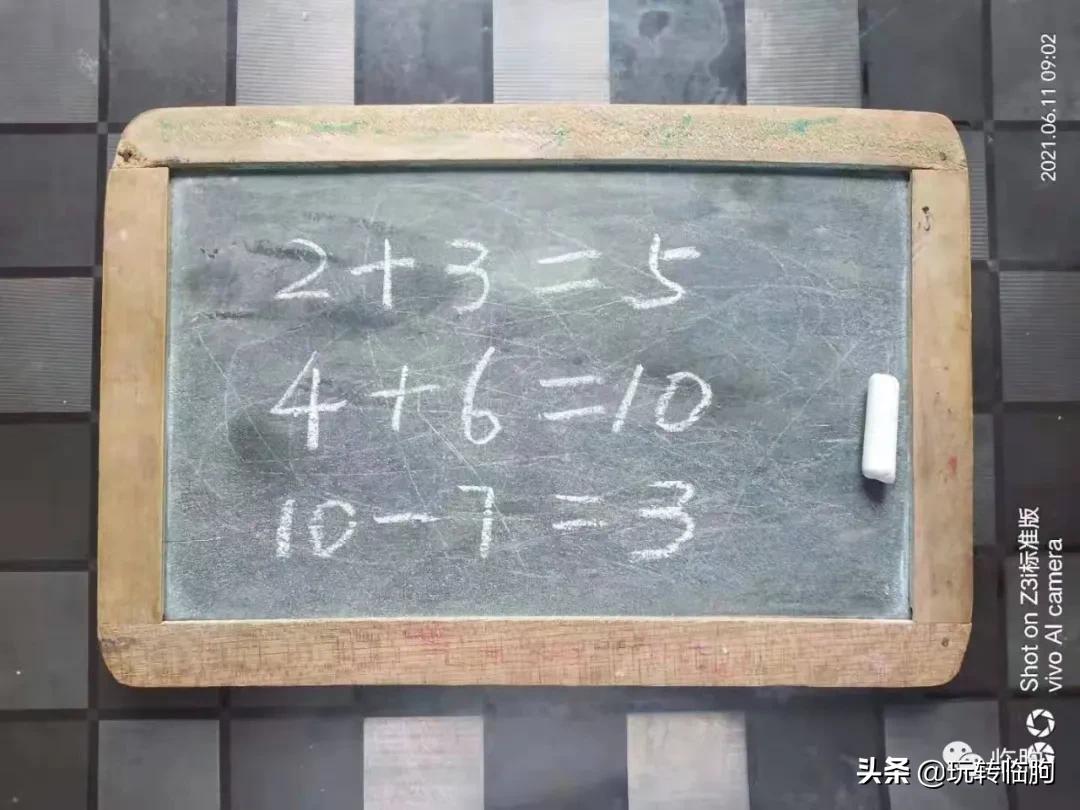 2+3=5
4+6=10
10-7=3
2021.06.11 09:02
Shot on Z3i标准版
vivo AI camera
临朐
头条 @玩转临朐